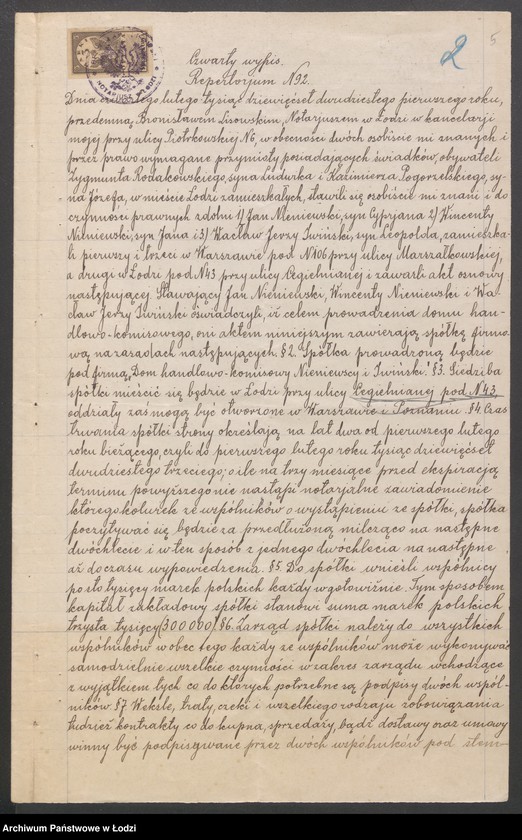 2
5
Czwarty wypis.
Repertorjum N92.
Dnia czwartego lutego tysiąc dziewięćset dwudziestego pierwszego roku,
przedemną Bronisławem Lisowskim, Notaryuszem w Łodzi w kancelarji
mojej przy ulicy Piotrkowskiej N6, w obecności dwóch osobiście mi znanych i
przez prawo wymagane przymioty posiadających świadków, obywateli
Zygmunta Rodakowskiego, syna Ludwika i Kazimierza Pogorzelskiego, sy-
na Józefa, w mieście Łodzi zamieszkałych, stawili się osobiście mi znani i do
czynności prawnych zdolni 1) Jan Nieniewski, syn Cyprjana 2) Wincenty
Nieniewski, syn Jana i 3) Wacław Jerzy Iwiński, syn Leopolda, zamieszka-
li pierwszy i trzeci w Warszawie pod N106 przy ulicy Marszałkowskiej,
a drugi w Łodzi pod N43 przy ulicy Cegielnianej i zawarli akt osnowy
następującej. Stawający Jan Nieniewski, Wincenty Nieniewski i Wa-
cław Jerzy Iwiński oświadczyli, iż celem prowadzenia domu han-
dlowo-komisowego, oni aktem niniejszym zawierają spółkę firmo-
wą na zasadach następujących. §2. Spółka prowadzoną będzie
pod firmą „Dom handlowo-komisowy Nieniewscy i Iwiński". §3. Siedziba
spółki mieścić się będzie w Łodzi przy ulicy Cegielnianej pod N43,
oddziały zaś mogą być otworzone w Warszawie i Poznaniu. §4. Czas
trwania spółki strony określają na lat dwa od pierwszego lutego
roku bieżącego, czyli do pierwszego lutego roku tysiąc dziewięćset
dwudziestego trzeciego; o ile na trzy miesiące przed ekspiracją
terminu powyższego nie nastąpi notarjalne zawiadomienie
któregokolwiek ze wspólników o wystąpieniu ze spółki, spółka
poczytywać się będzie za przedłużoną milcząco na następne
dwóchlecie i w ten sposób z jednego dwóchlecia na następne
aż do czasu wypowiedzenia. §5. Do spółki wnieśli wspólnicy
po sto tysięcy marek polskich każdy w gotowiźnie. Tym sposobem
kapitał zakładowy spółki stanowi suma marek polskich
trzysta tysięcy (300000). §6. Zarząd spółki należy do wszystkich
wspólników wobec tego każdy ze wspólników może wykonywać
samodzielnie wszelkie czynności w zakres zarządu wchodzące
z wyjątkiem tych co do których potrzebne są podpisy dwóch wspól-
ników. §7. Weksle, traty, czeki i wszelkiego rodzaju zobowiązania
tudzież kontrakty co do kupna, sprzedaży, bądź dostawy oraz umowy
winny być podpisywane przez dwóch wspólników pod stem-
Archiwum Państwowe w Łodzi